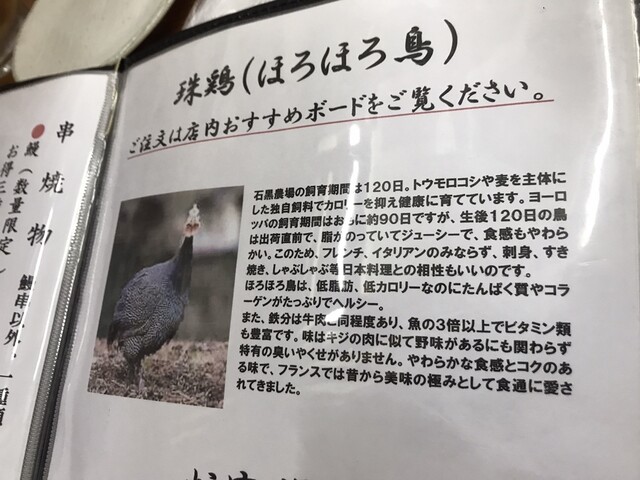 珠鶏(ほろほろ鳥)
ご注文は店内おすすめボードをご覧ください。
石黒農場の飼育期間は120日。トウモロコシや麦を主体に
した独自飼料でカロリーを抑え健康に育てています。ヨーロ
ッパの飼育期間はおもに約90日ですが、生後120日の鳥
は出荷直前で、脂がのっていてジューシーで、食感もやわら
かい。このため、フレンチ、イタリアンのみならず、刺身、すき
焼き、しゃぶしゃぶ等日本料理との相性もいいのです。
ほろほろ鳥は、低脂肪、低カロリーなのにたんぱく質やコラ
ーゲンがたっぷりでヘルシー。
また、鉄分は牛肉と同程度あり、魚の3倍以上でビタミン類
も豊富です。味はキジの肉に似て野味があるにも関わらず
特有の臭いやくせがありません。やわらかな食感とコクのあ
る味で、フランスでは昔から美味の極みとして食通に愛さ
れてきました。
串焼物
鰻(数量限定)
お得三
鰻串以外、一種類